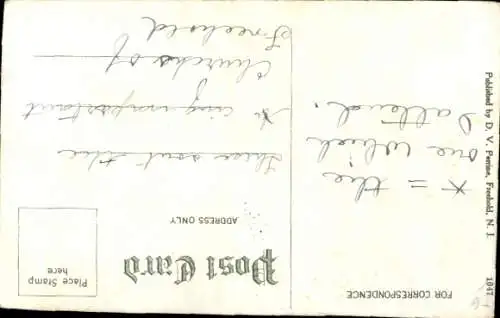 FOR CORRESPONDENCE
Post Card
ADDRESS ONLY
Place Stamp
here
x = the
one which
I attend.
the
important
Churches of
Freehold
1047
Published by D. V. Perrine, Freehold, N. J.